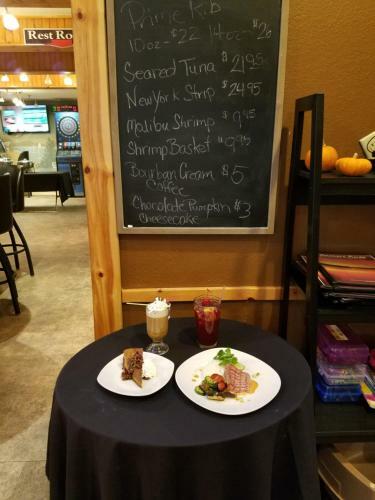 Rest Ro
Prime Rib
10oz - $22 14oz - $26
Seared Tuna $21.95
New York Strip $24.95
Malibu Shrimp $9.95
Shrimp Basket $9.95
Bourban Cream $5
Coffee
Chocolate Pumpkin $3
Cheesecake